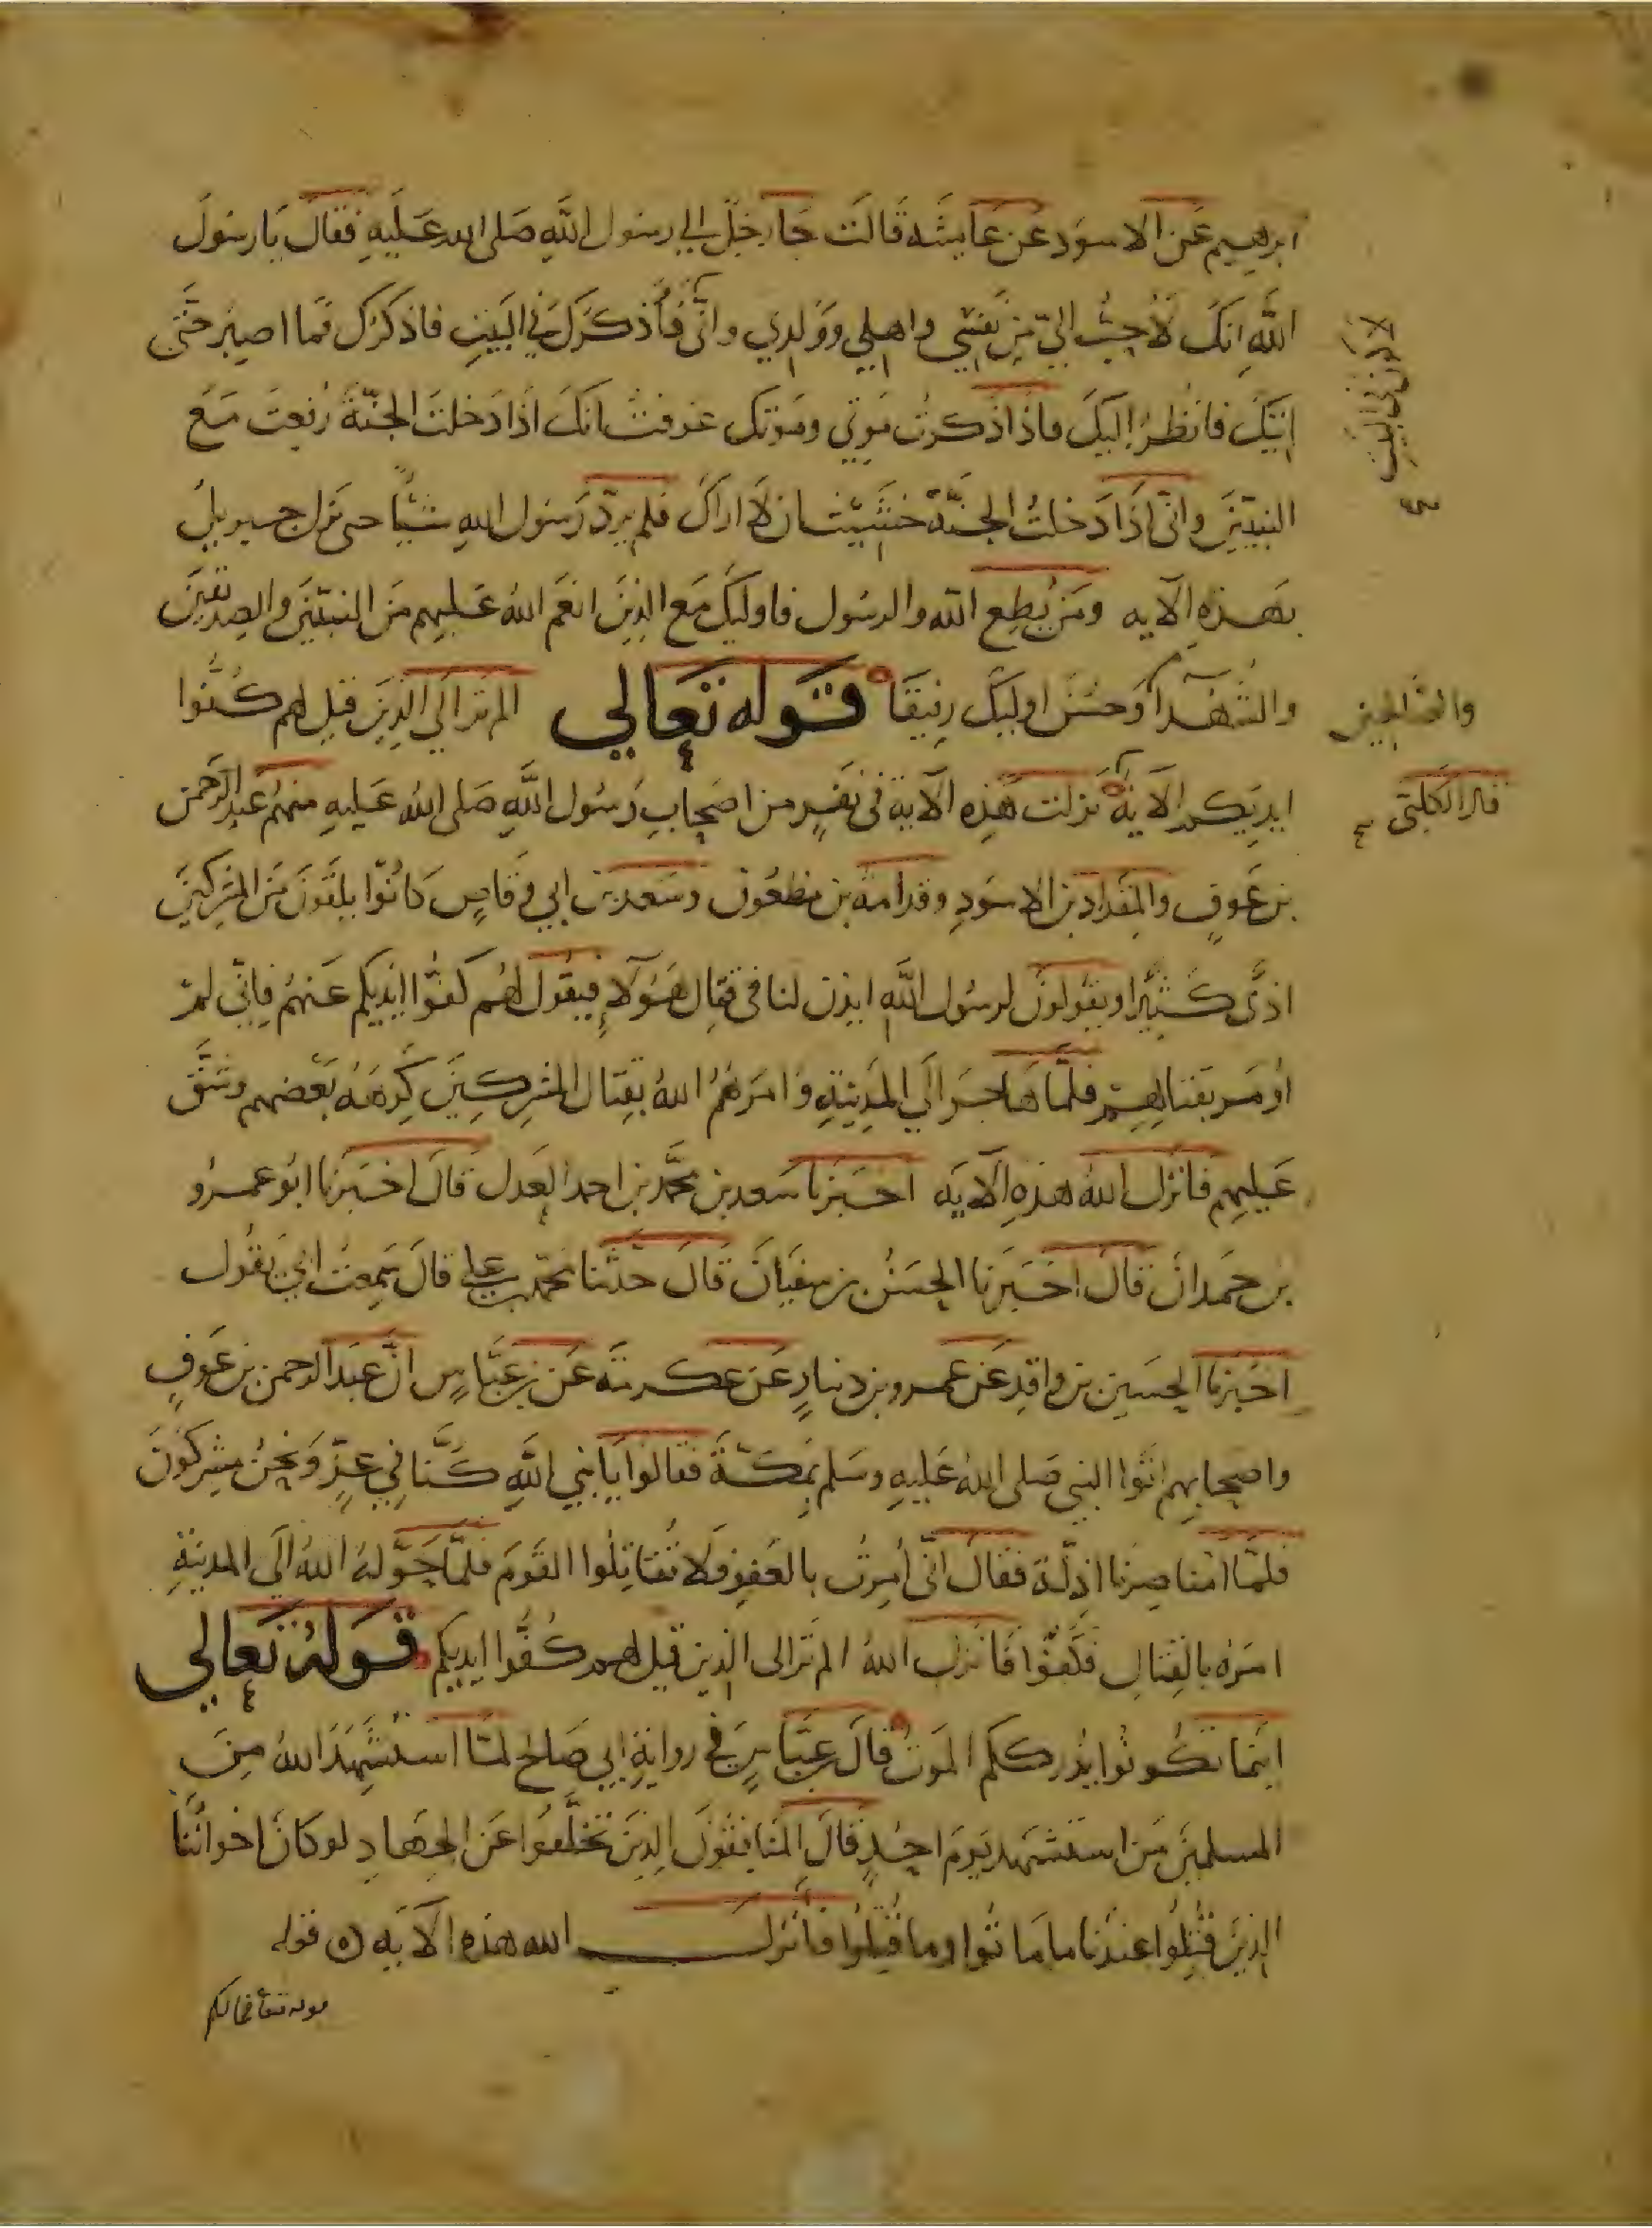 ابرهيم عَن الاسوَد عَن عَايشَة قَالَت جَا رَجُلٌ الى رسُول اللَّهِ صَلى الله عَليَهِ فقالَ يَا رسُولَ
اللَّهِ انكَ لَأحِبُّ اليّ مِن نَفسِي واهلِي ووَلدِي وانّى فأذكرَكَ فِي البَيتِ فاذكرُكَ فمَا اصبِرُ حَتَّى
لأكون فى البيت
صح
اتِيَكَ فانظُرُ إليكَ فاذا ذكرتُ مَوتي ومَوتَك عَرفتُ انكَ اذا دَخلتَ الجَنّةَ رُفِعتَ مَعَ
النبيّينَ وانّى اذا دَخلتُ الجنَّةَ خَشِيتُ ان لا اراكَ فلم يَردّ رَسُول اللهِ شيئًا حتى نزل جبريلُ
بهَذِهِ الآيه ومَن يُطِع الله والرسُول فاوليكَ مَع الذِينَ انعَم اللهُ عَليهِم مِنَ النبيّينَ والصِديقينَ
والشُهَدآ وَحسُنَ اوليكَ رفيقًا قَوله تعَالي الم تَرَ الَي الذِينَ قِيل لهم كُفُّوا
والصَالحين
ايديَكم الآيةَ نزلت هَذِه الآية فى نَفَرٍ من اصحَابِ رَسُول اللَّهِ صَلى اللهُ عَليهِ منهُم عَبد الرَّحمن
قال الكلبى صح
بن عَوفٍ والمِقدَاد بن الاسوَدِ وقدامَة بن مظعُون وسَعد بن ابي وقَاصٍ كانُوا يلقَونَ مِنَ المُشركينَ
اذًى كَثيرًا ويقُولُونَ لرسُول اللَّهِ ايذن لنا فى قتال هَؤلآءِ فيقُولُ لهُم كفُّوا ايديكم عَنهُم فاِنّى لم
اُومَر بقتالهِم فلمّا هَاجَرَ الَي المَدِينةِ وَامَرَهُمُ اللهُ بقتال المُشركِينَ كرِهَهُ بَعضهم وشَقَّ
عَليهِم فانزَل اللهُ هذهِ الآيَه اخبَرنَا سَعد بن محَمَّد بن احمد العَدل قَالَ اخبَرنَا ابُو عَمرو
بن حَمدانَ قَالَ اخبَرنا الحَسَنُ بن سفيَانَ قَالَ حَدَّثنا محَمّد بن علي قالَ سَمِعتُ ابي يَقُول
اخبَرنا الحسَين بن واقدٍ عَن عمرو بن دينارٍ عَن عِكرمَة عَن بن عَبَّاسٍ انَّ عَبدَ الرحمن بن عَوفٍ
واصحابهم اتَوا النبي صَلى اللهُ عَليهِ وسَلم بمَكةَ فقَالوا يَا نبي اللَّهِ كُنَّا فِي عِزٍّ وَنحنُ مشركُونَ
فلمّا امَنا صِرنا اذِلَّةً فقَالَ انّى أُمِرتُ بالعَفوِ فَلا تُقاتِلُوا القَومَ فلمَّا حَوَّلهُ اللهُ الَى المدينَةِ
امَرَهُ بالقِتالِ فكَفُّوا فَانزَلَ اللهُ الم تَر الى الذين قيل لهم كُفُّوا ايديكم قَولهُ تعَالي
اينَما تَكُونُوا يُدرككم المَوتُ قَالَ بن عبَّاسٍ فى رِوايةِ ابي صَالحٍ لمَّا استُشهِدَ اللهُ مِنَ
المسلمينَ مَن استشهد يَومَ احُدٍ قَالَ المُنَافقُونَ الذِينَ تخَلَّفُوا عَن الجِهَادِ لو كانَ اخوانُنَا
الذِينَ قُتِلُوا عندَنا ما مَاتُوا وما قُتِلُوا فَأَنزَلَ الله هذه الآيَه قوله
قوله تعا فما لكم